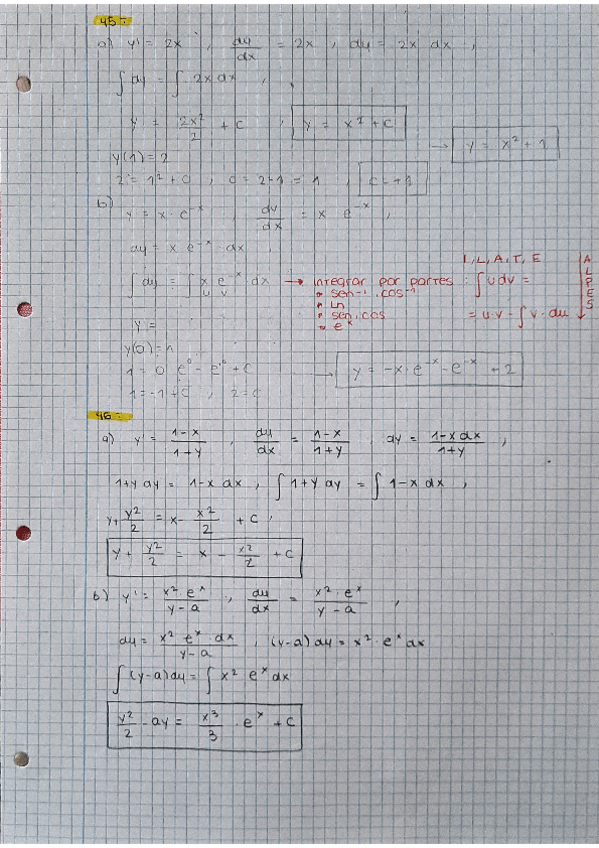 45:
a) y' = 2x , dy/dx = 2x , dy = 2x dx ,
∫ dy = ∫ 2x dx ,
y = 2x²/2 + C , y = x² + C
→ y = x² + 1
y(1) = 2
2 = 1² + C , C = 2 - 1 = 1 , C = +1
b) y = x · e^-x , dy/dx = x e^-x ,
dy = x e^-x · dx ,
∫ dy = ∫ x e^-x dx → integrar por partes : ∫ u dv =
u v
I, L, A, T, E
A L P E S
• sen^-1 . cos^-1
• Ln
• sen, cos
• e^x
= u·v - ∫ v · du
y =
y(0) = 1
1 = 0 e^0 - e^0 + C
1 = -1 + C , 2 = C
→ y = -x · e^-x - e^-x + 2
46:
a) y' = 1-x/1+y , dy/dx = 1-x/1+y , dy = 1-x dx/1+y ,
1+y dy = 1-x dx , ∫ 1+y dy = ∫ 1-x dx ,
y + y²/2 = x - x²/2 + C ,
y + y²/2 = x - x²/2 + C
b) y' = x² e^x/y-a , dy/dx = x² · e^x/y-a ,
dy = x² e^x dx/y-a , (y-a) dy = x² · e^x dx
∫ (y-a) dy = ∫ x² e^x dx
y²/2 - ay = x³/3 · e^x + C